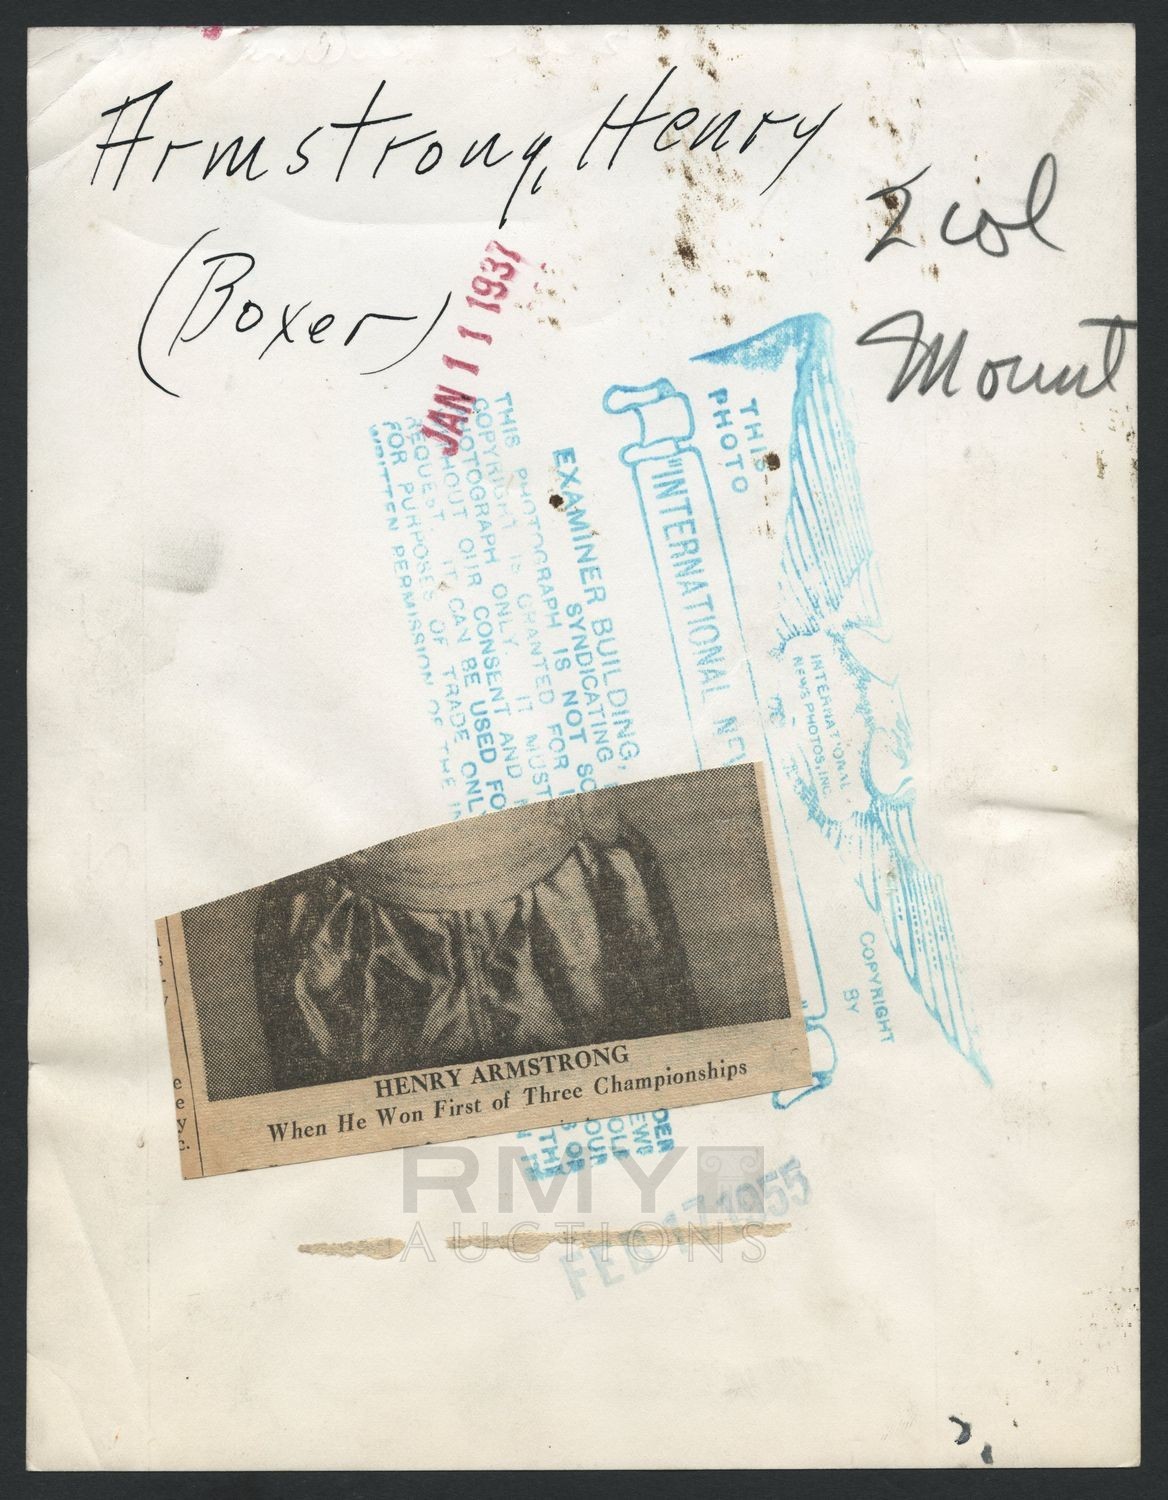 Armstrong, Henry
(Boxer)
2 col
Mount
JAN 11 1937
THIS
PHOTO
"INTERNATIONAL NEW
INTERNATIONAL
NEWS PHOTOS, INC.
COPYRIGHT
BY
EXAMINER BUILDING,
SYNDICATING
THIS PHOTOGRAPH IS NOT SO
COPYRIGHT IS GRANTED FOR
PHOTOGRAPH ONLY. IT MUST
WITHOUT OUR CONSENT AND
REQUEST IT CAN BE USED FO
FOR PURPOSES OF TRADE ONL
WRITTEN PERMISSION OF THE IN
HENRY ARMSTRONG
When He Won First of Three Championships
e
e
y
c.
DER
NEW
OUR
S OR
THE
RMY
AUCTIONS
FEB 17 1955